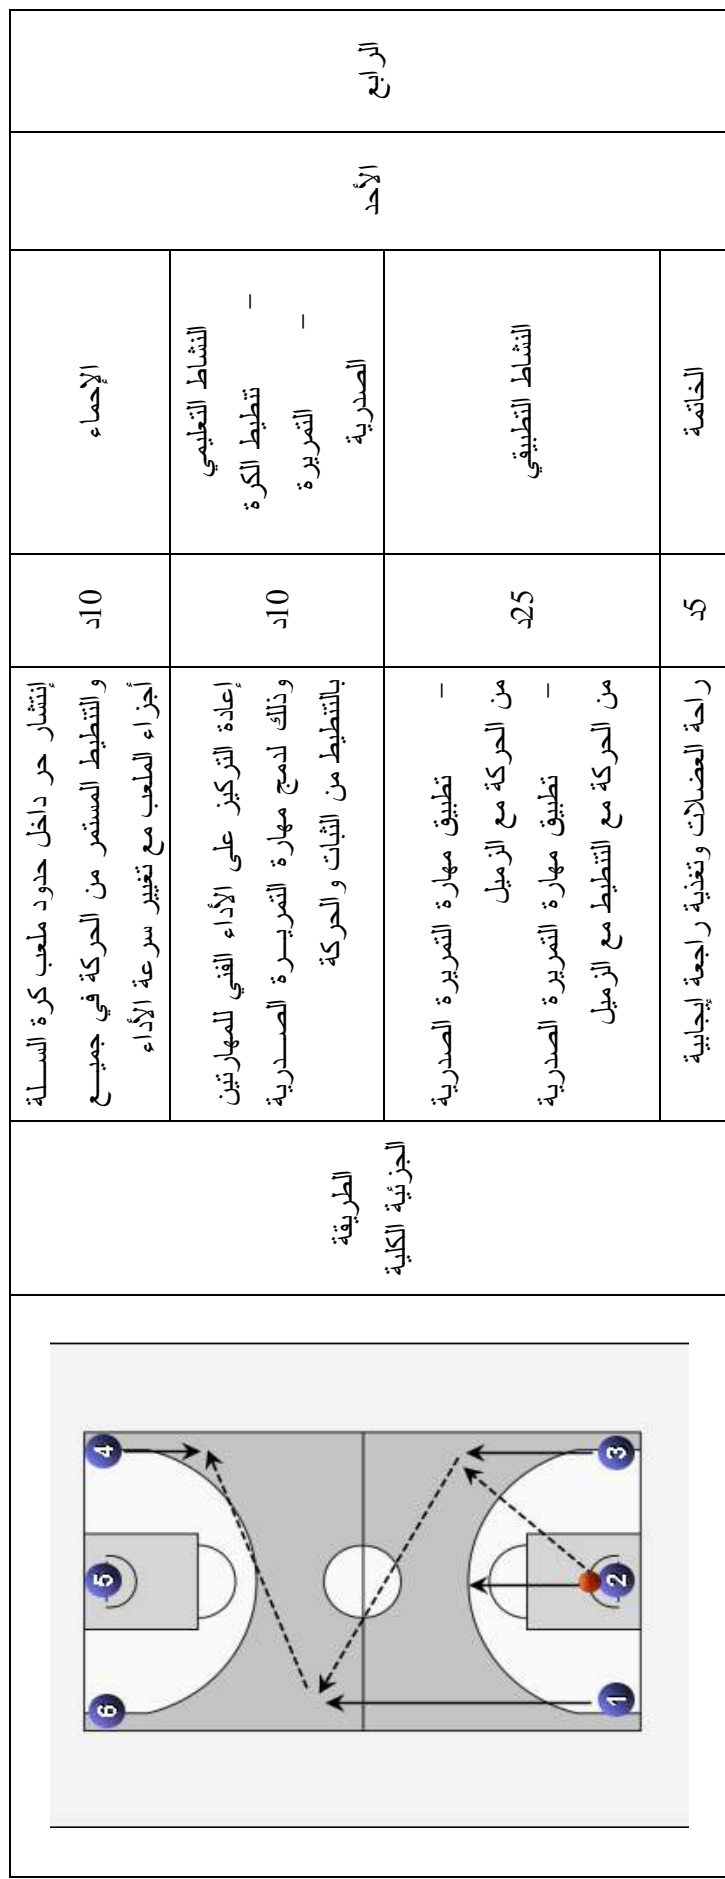 الرابع
الأحد
الإحماء
10د
إنتشار حر داخل حدود ملعب كرة السـلة
والتنطيط المستمر من الحركة في جميـع
أجزاء الملعب مع تغيير سرعة الأداء
النشاط التعليمي
– تنطيط الكرة
– التمريرة
الصدرية
10د
إعادة التركيز على الأداء الفني للمهارتين
وذلك لدمج مهارة التمريـرة الصـدرية
بالتنطيط من الثبات والحركة
النشاط التطبيقي
25د
– تطبيق مهارة التمريرة الصدرية
من الحركة مع الزميل
– تطبيق مهارة التمريرة الصدرية
من الحركة مع التنطيط مع الزميل
الخاتمة
5د
راحة العضلات وتغذية راجعة إيجابية
الطريقة
الجزئية الكلية
4
5
6
3
2
1